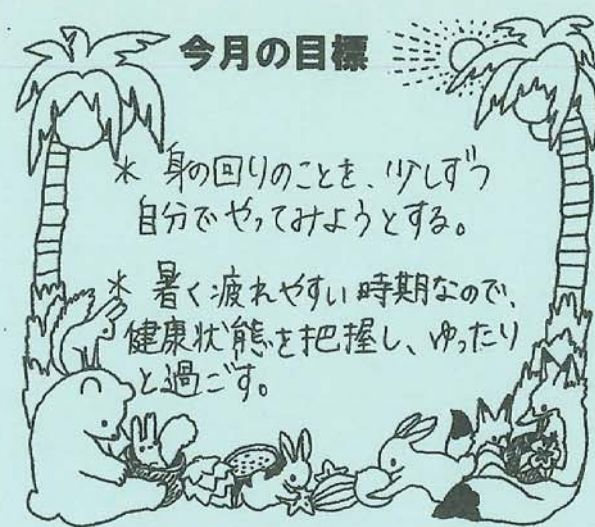 今月の目標
* 身の回りのことを、少しずつ
自分でやってみようとする。
* 暑く疲れやすい時期なので、
健康状態を把握し、ゆったり
と過ごす。